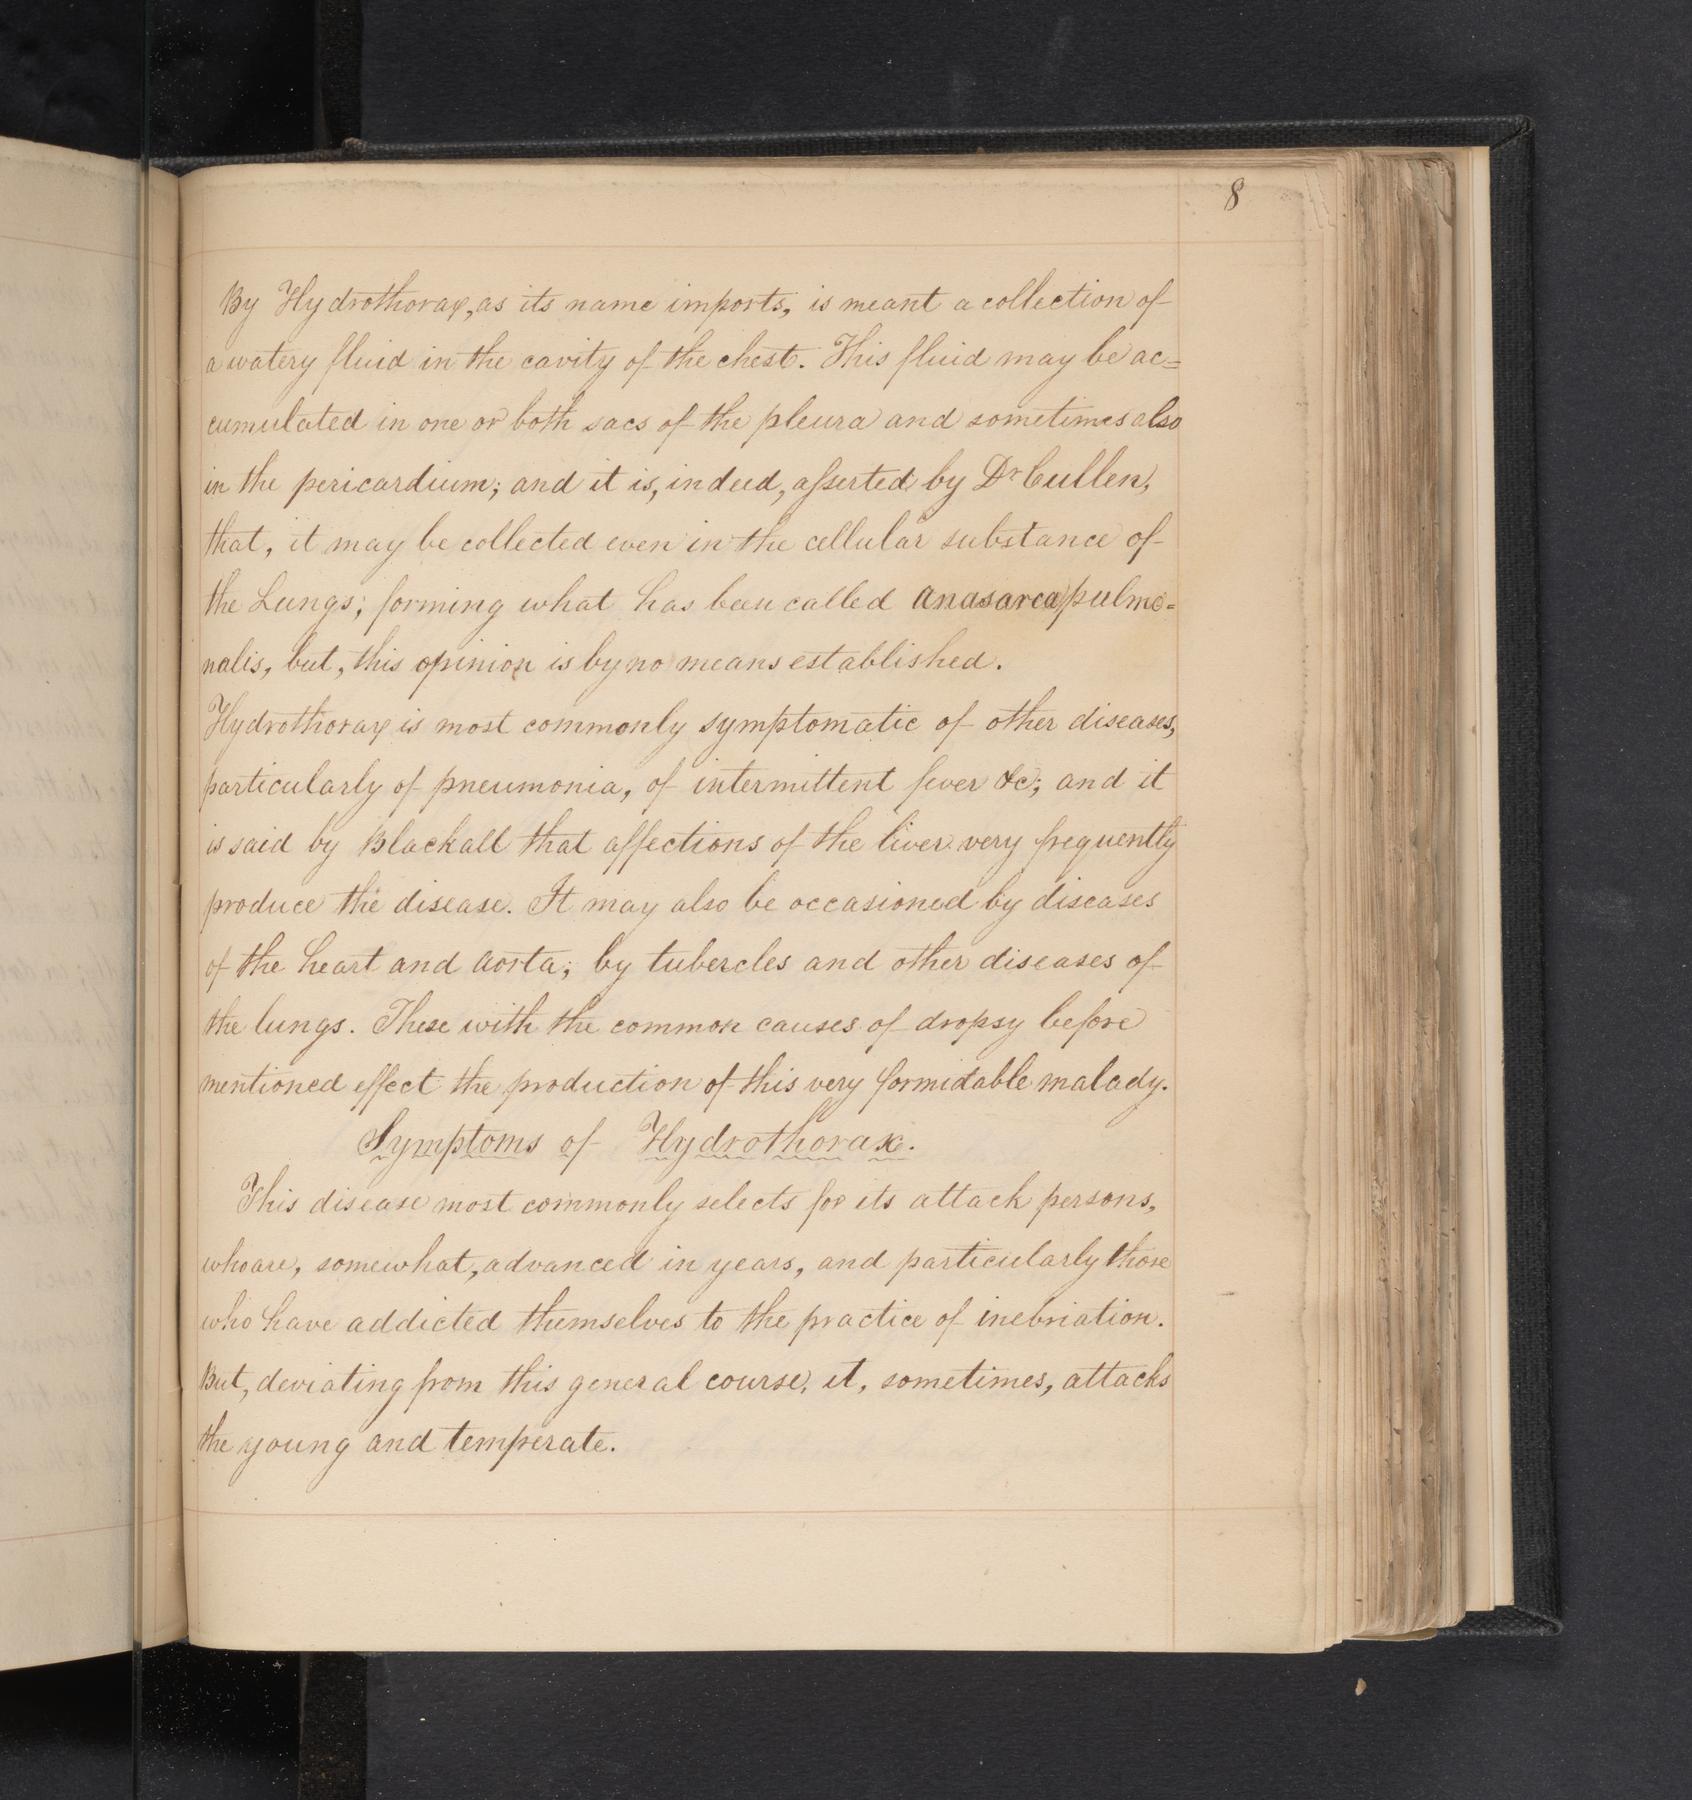 8
By Hydrothorax, as its name imports, is meant a collection of
a watery fluid in the cavity of the chest. This fluid may be ac=
cumulated in one or both sacs of the pleura and sometimes also
in the pericardium; and it is, indeed, asserted by Dr Cullen,
that, it may be collected even in the cellular substance of
the Lungs; forming what has been called anasarca pulmo=
nalis, but, this opinion is by no means established.
Hydrothorax is most commonly symptomatic of other diseases,
particularly of pneumonia, of intermittent fever &c; and it
is said by Blackall that affections of the liver very frequently
produce the disease. It may also be occasioned by diseases
of the heart and aorta; by tubercles and other diseases of
the lungs. These with the common causes of dropsy before
mentioned effect the production of this very formidable malady.
Symptoms of Hydrothorax.
This disease most commonly selects for its attack persons,
who are, somewhat, advanced in years, and particularly those
who have addicted themselves to the practice of inebriation.
But, deviating from this general course, it, sometimes, attacks
the young and temperate.